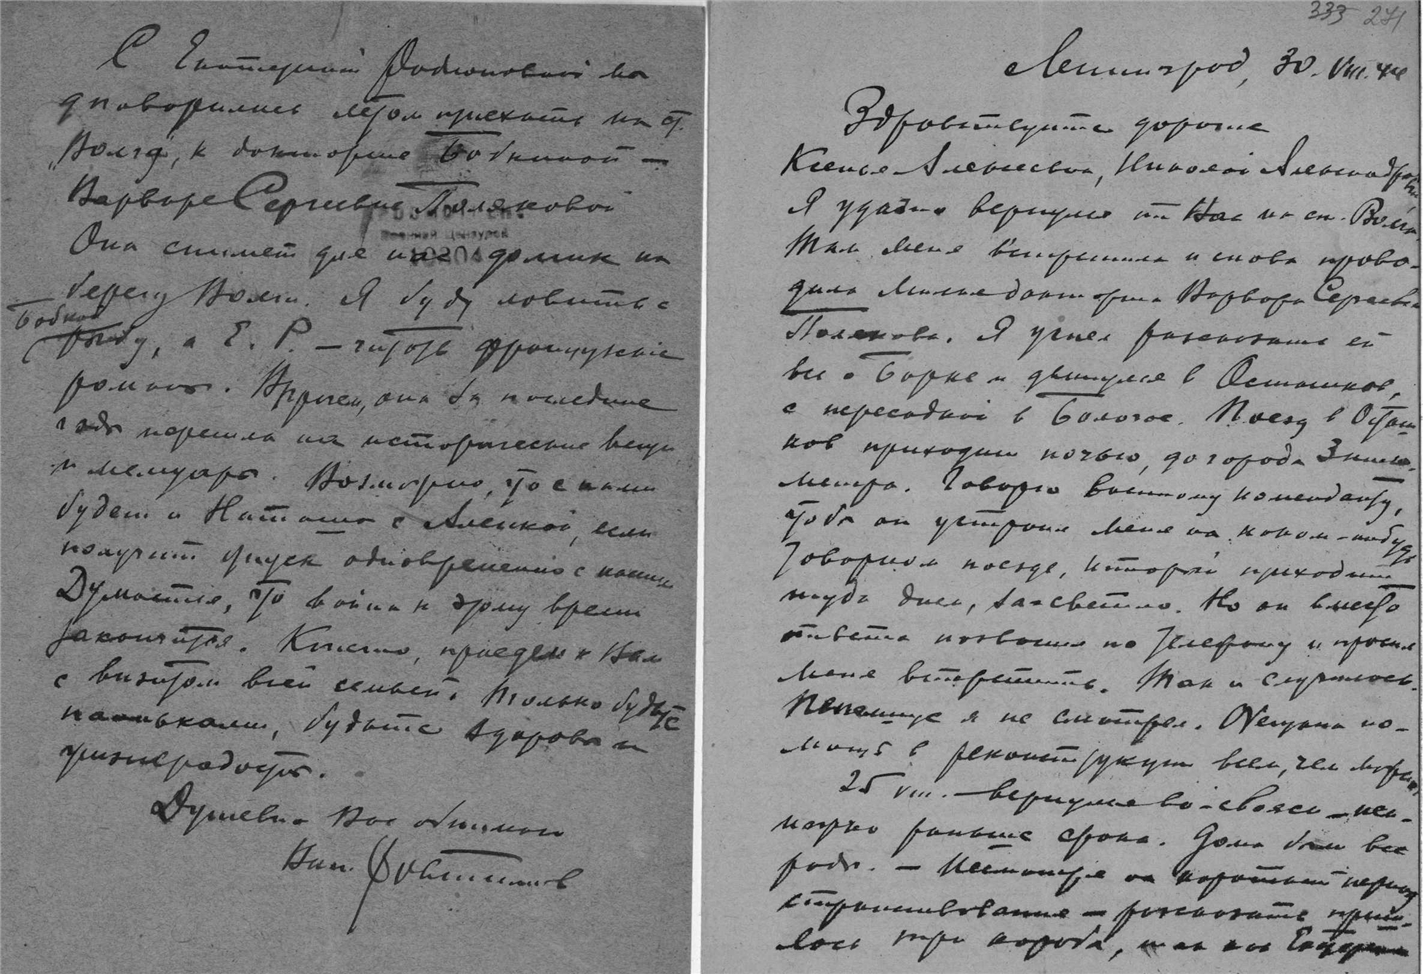 С Екатериной Родионовной мы
договорились летом приехать на ст.
"Волга", к докторше Бобкиной —
Варваре Сергеевне Поляковой
Она снимет для нас домик на
берегу Волги. Я буду ловить с
Бобков
рыбу, а Е. Р. — читать французские
романы. Впрочем, она за последние
годы перешла на исторические вещи
и мемуары. Возможно, что с нами
будет и Наташа с Алешкой, если
получит отпуск одновременно с нами
Думается, что война к этому время
закончится. Конечно, приедем к Вам
с визитом всей семьей. Только будьте
паиньками, будьте здоровы и
жизнерадостны.
Душевно Вас обнимаю
Ваш
Просмотрено
Военной Цензурой
10204
333 271
Ленинград, 30. VIII. 44
Здравствуйте дорогие
Ксенья Алексеевна, Николай Александрович
Я удачно вернулся от Вас на ст. Волга
Там меня встретила и снова прово-
дила милая докторша Варвара Сергеевна
Полякова. Я успел рассказать ей
все о Борке и двинулся в Осташков,
с пересадкой в Бологое. Поезд в Осташ-
ков приходит ночью, до города 3 кило-
метра. Говорю военному коменданту,
чтобы он устроил меня на каком-нибудь
товарном поезде, который приходит
туда днем, засветло. Но он вместо
ответа позвонил по телефону и просил
меня встретить. Так и случилось.
я не смотрел. Обещана по-
мощь в реконструкции всем, чем
25 VIII. — вернулся во-свояси — нем-
ножко раньше срока. Дома были все
рады. — Несмотря на короткий период
странствования — рассказать приш-
лось три короба, так как